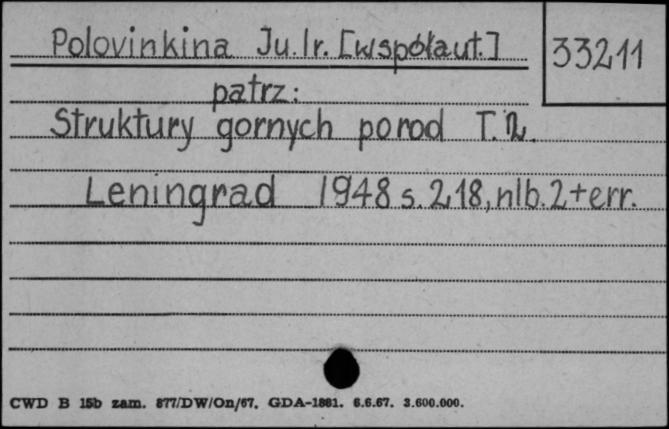 Polovinkina Ju. Ir. [współaut.]
33211
patrz:
Struktury gornych porod T. 2.
Leningrad 1948 s. 218, nlb. 2 + err.
CWD B 15b zam. 877/DW/On/67. GDA-1881. 6.6.67. 3.600.000.